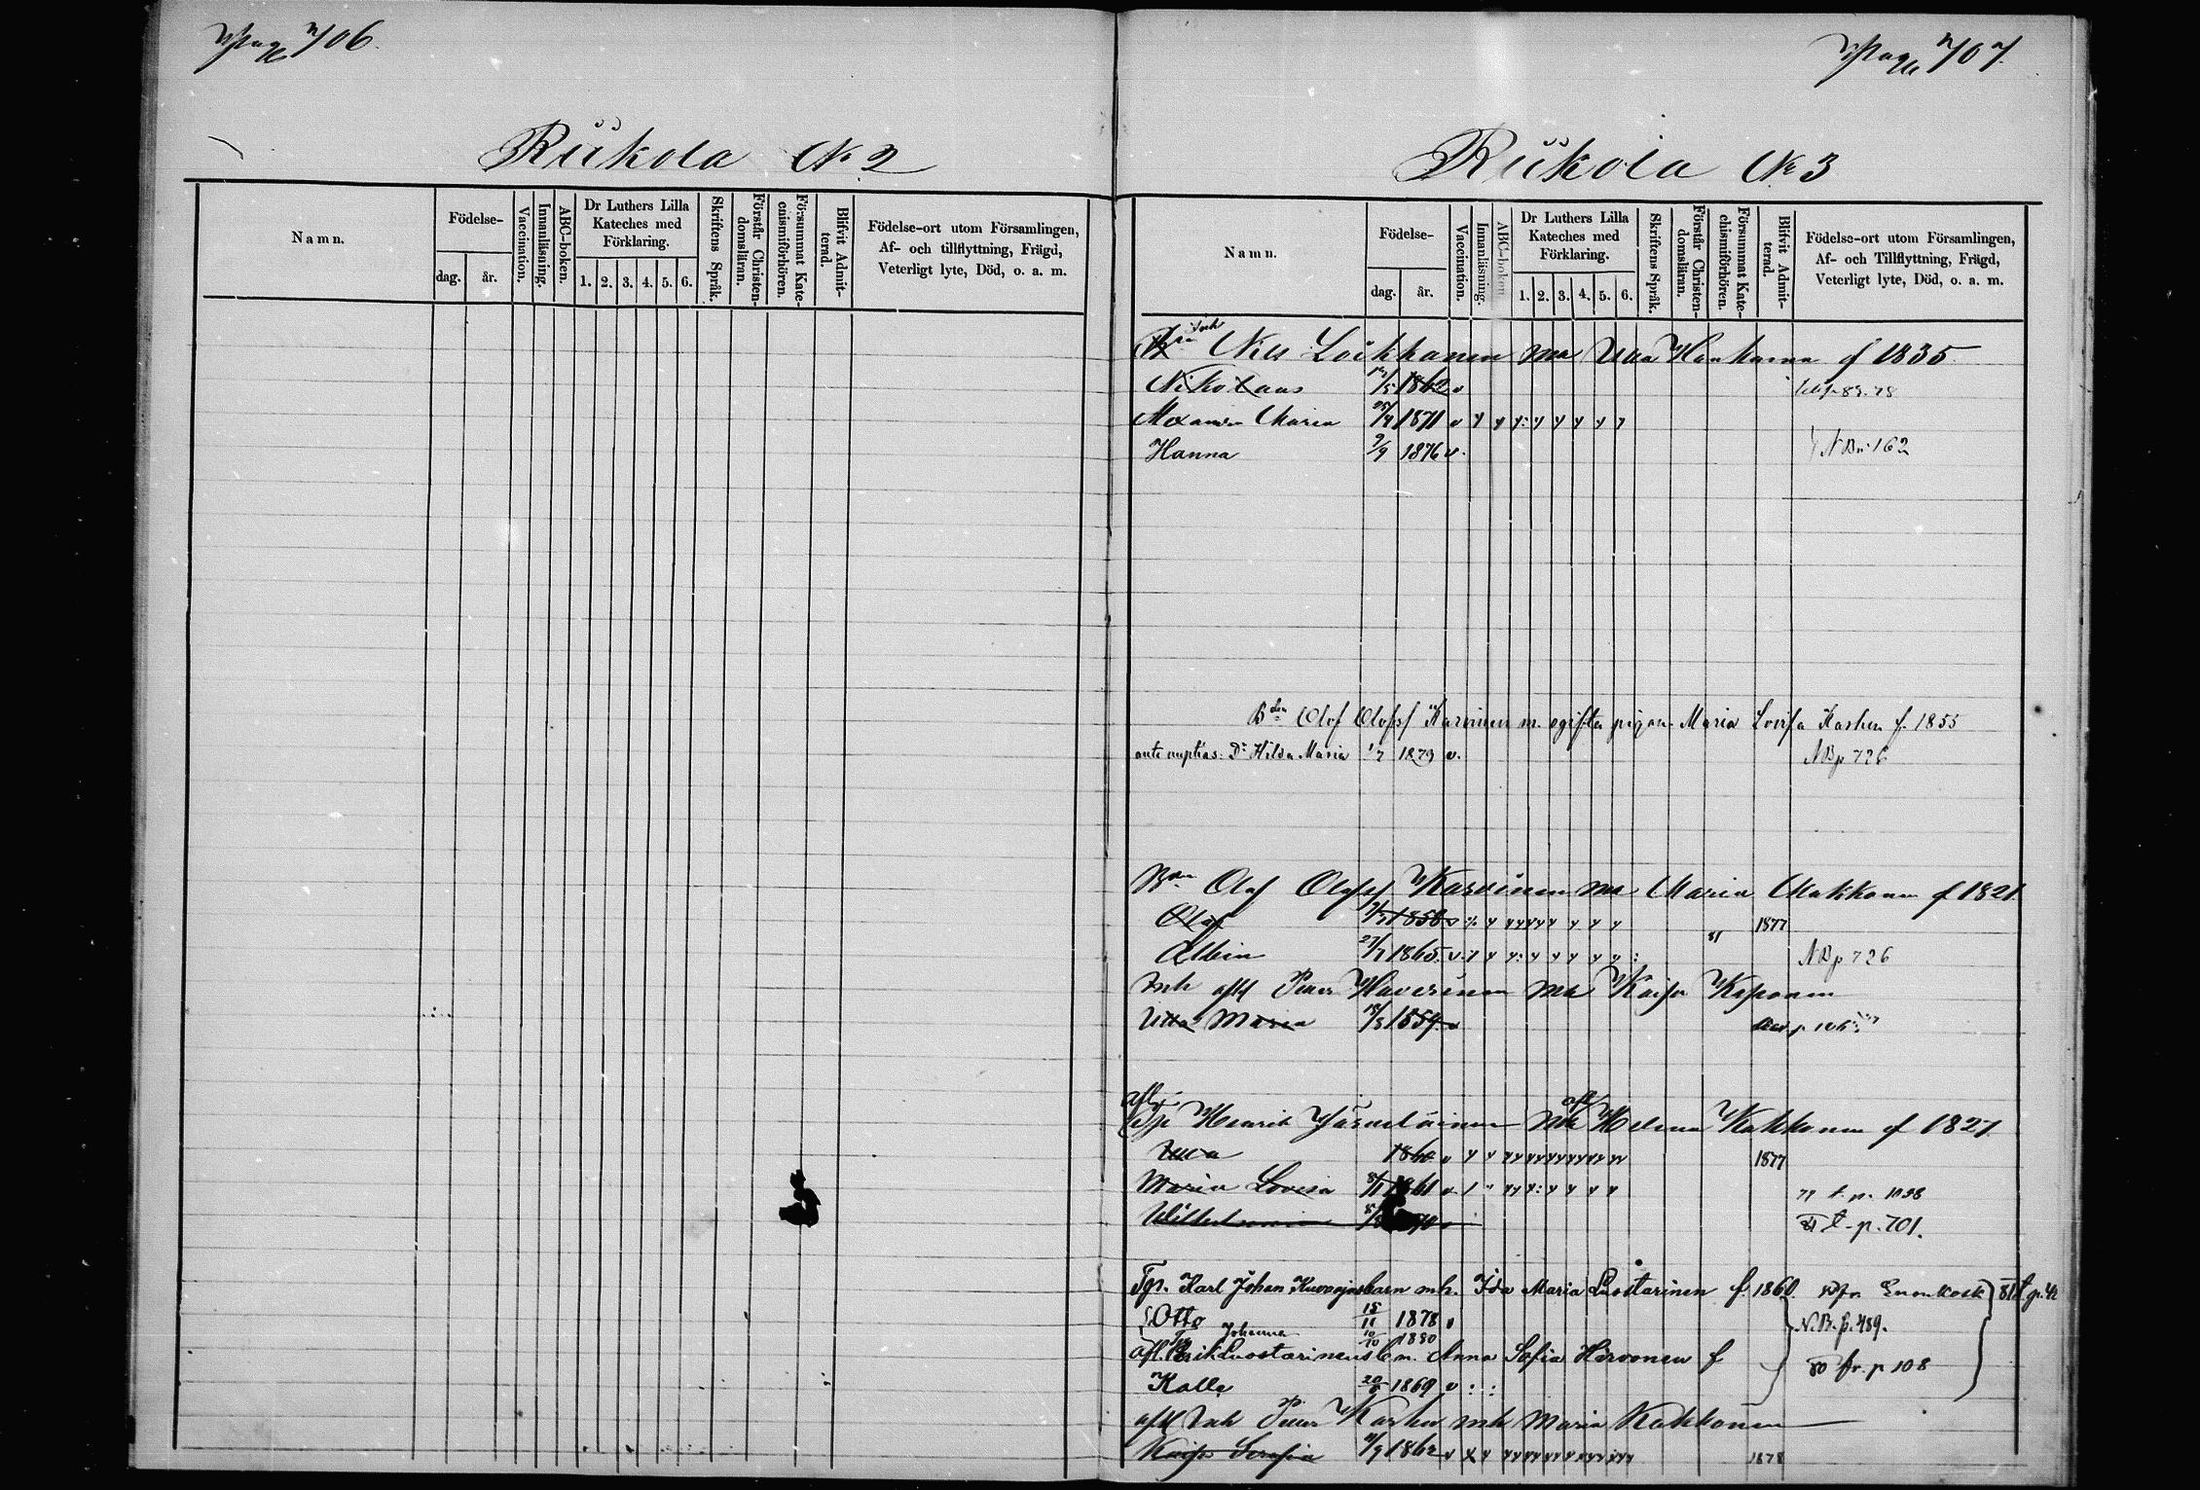 Pag 706.
Riikola No 2
Namn.
Födelse-
dag.
år.
Vaccination.
Innanläsning.
ABC-boken.
Dr Luthers Lilla
Kateches med
Förklaring.
1. 2. 3. 4. 5. 6.
Skriftens Språk.
Förstår Christen-
domsläran.
Försummat Kate-
chismiförhören.
Blifvit Admit-
terad.
Födelse-ort utom Församlingen,
Af- och tillflyttning, Frägd,
Veterligt lyte, Död, o. a. m.
Pag 707.
Riikola No 3
Namn.
Födelse-
dag.
år.
Vaccination.
Innanläsning.
ABC-boken.
Dr Luthers Lilla
Kateches med
Förklaring.
1. 2. 3. 4. 5. 6.
Skriftens Språk.
Förstår Christen-
domsläran.
Försummat Kate-
chismiförhören.
Blifvit Admit-
terad.
Födelse-ort utom Församlingen,
Af- och Tillflyttning, Frägd,
Veterligt lyte, Död, o. a. m.
Nils Loikkanen f 1835
Nikolaus 1862 v
Maria 1871 v
Hanna 2/9 1876 v. 162
Bdn Olof Olofsf Karvinen m. ogifta pigan Maria Lovisa Karhu f. 1855
ante nuptias: Dr Hilda Maria 1/7 1879 v. NB p 726
Bdn Olof Olofsf Karvinen mh Maria Makkonen f 1821
Olof 1858 v 1877
Albin 27/7 1865 v 81 NB p 726
Inh afl Petter Haverinen mh Kaisa Kaponen
Ulla Maria 1854 v
afl.
Tp Henrik Yäräsläinen mh afl Helena Kakkonen f 1827
Ulla 1860 v 1877
Maria Lovisa 1861 v t. p. 1038
Wilhelmina t. p. 701.
Tp. Karl Johan mh. Ida Maria Luostarinen f. 1860. fr. Enonkosk
Otto 18/11 1878 v N.B. p. 489.
Johanna 10/10 1880
Afl. Tp Erik Luostarinens b m. Anna Sofia Hirvonen f 80 fr. p 108
Kalle 1869 v
afl Inh Petter Karhu mh Maria Kakkonen
Kaisa Serafia 1862 v 1878